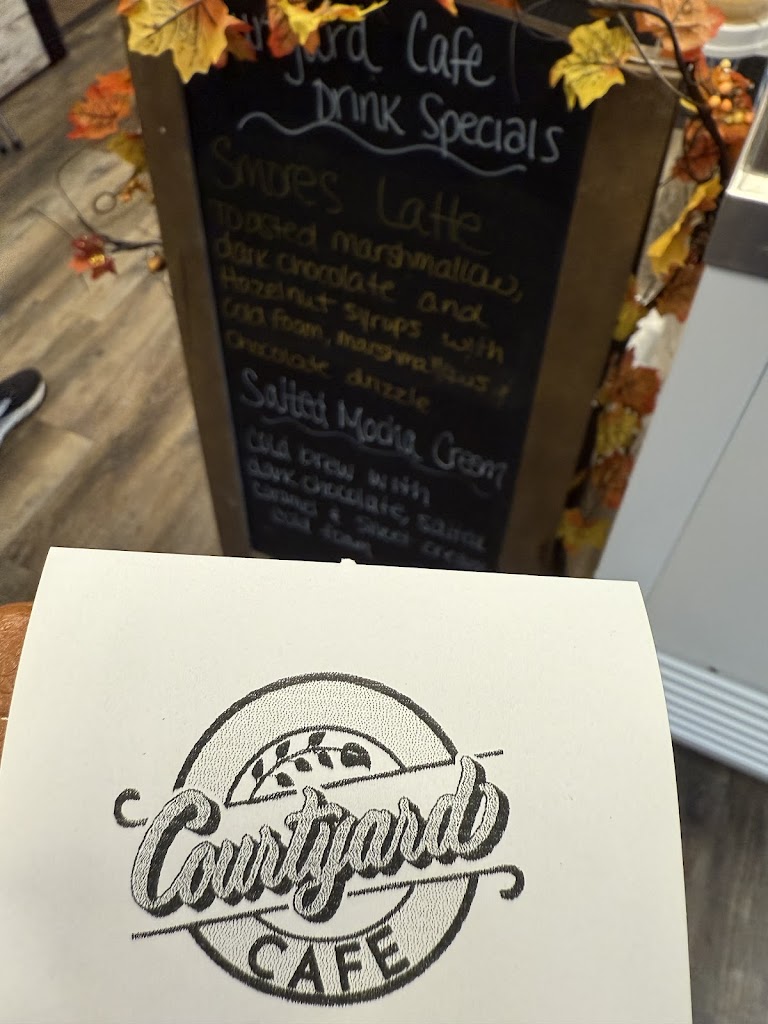 Cafe
Drink Specials
Smores Latte
Toasted marshmallow,
dark chocolate and
Hazelnut syrups with
cold foam, marshmallows +
chocolate drizzle
Salted Mocha Cream
cold brew with
dark chocolate, salted
caramel + sweet cream
cold foam
Courtyard
CAFE